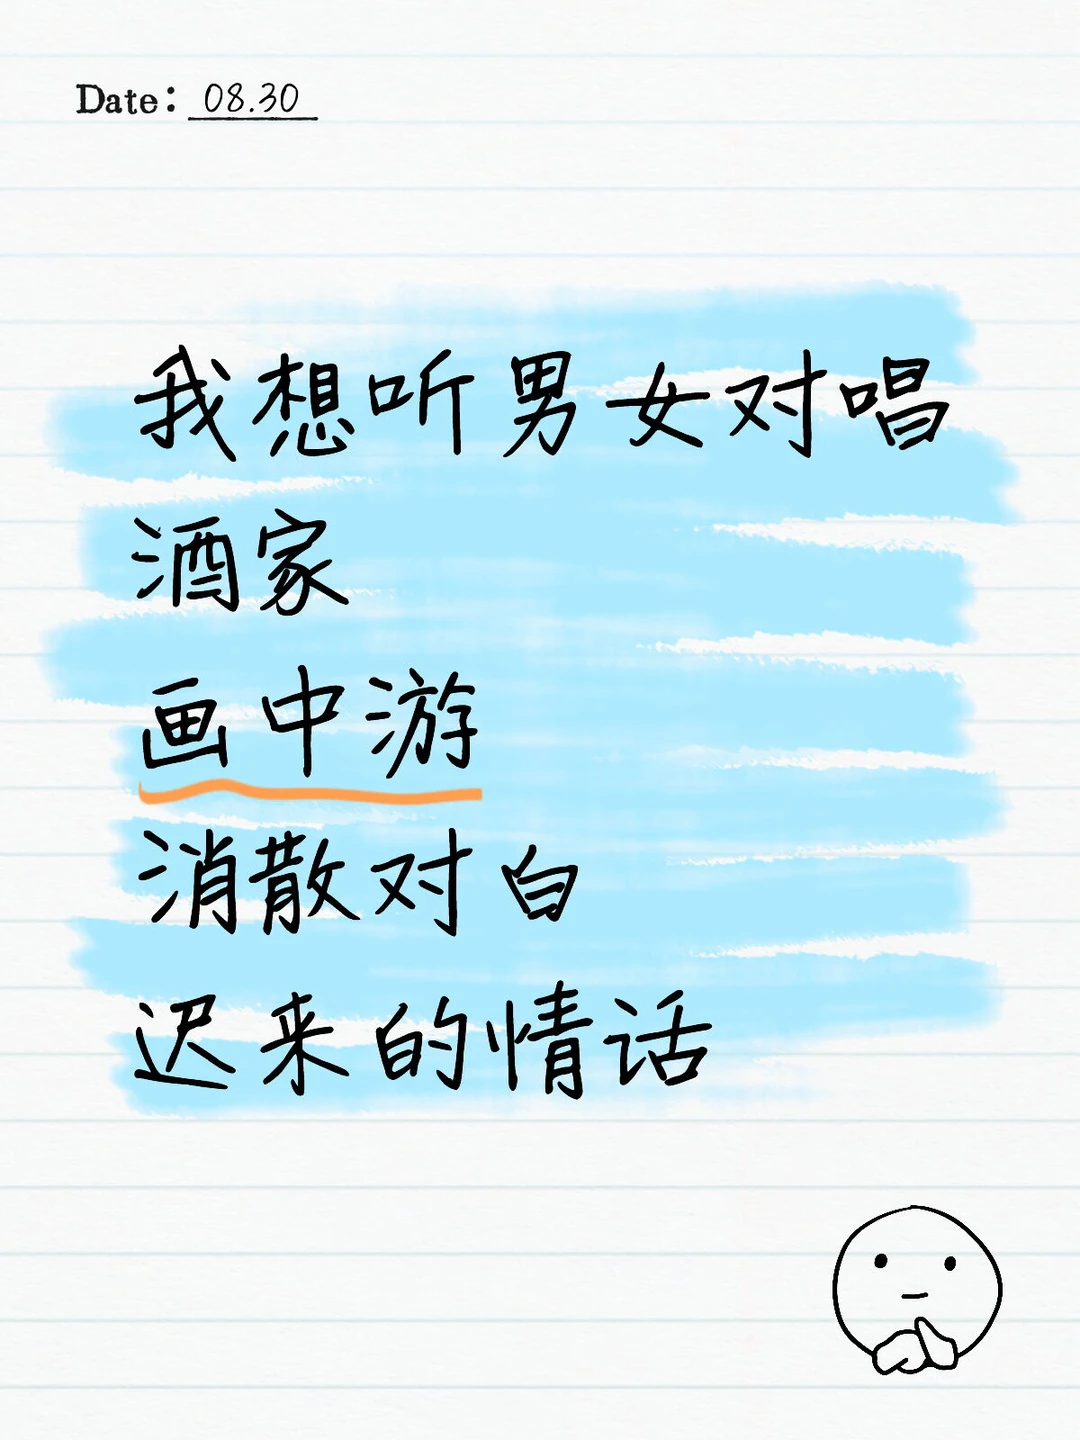 Date: 08.30
我想听男女对唱
酒家
画中游
消散对白
迟来的情话